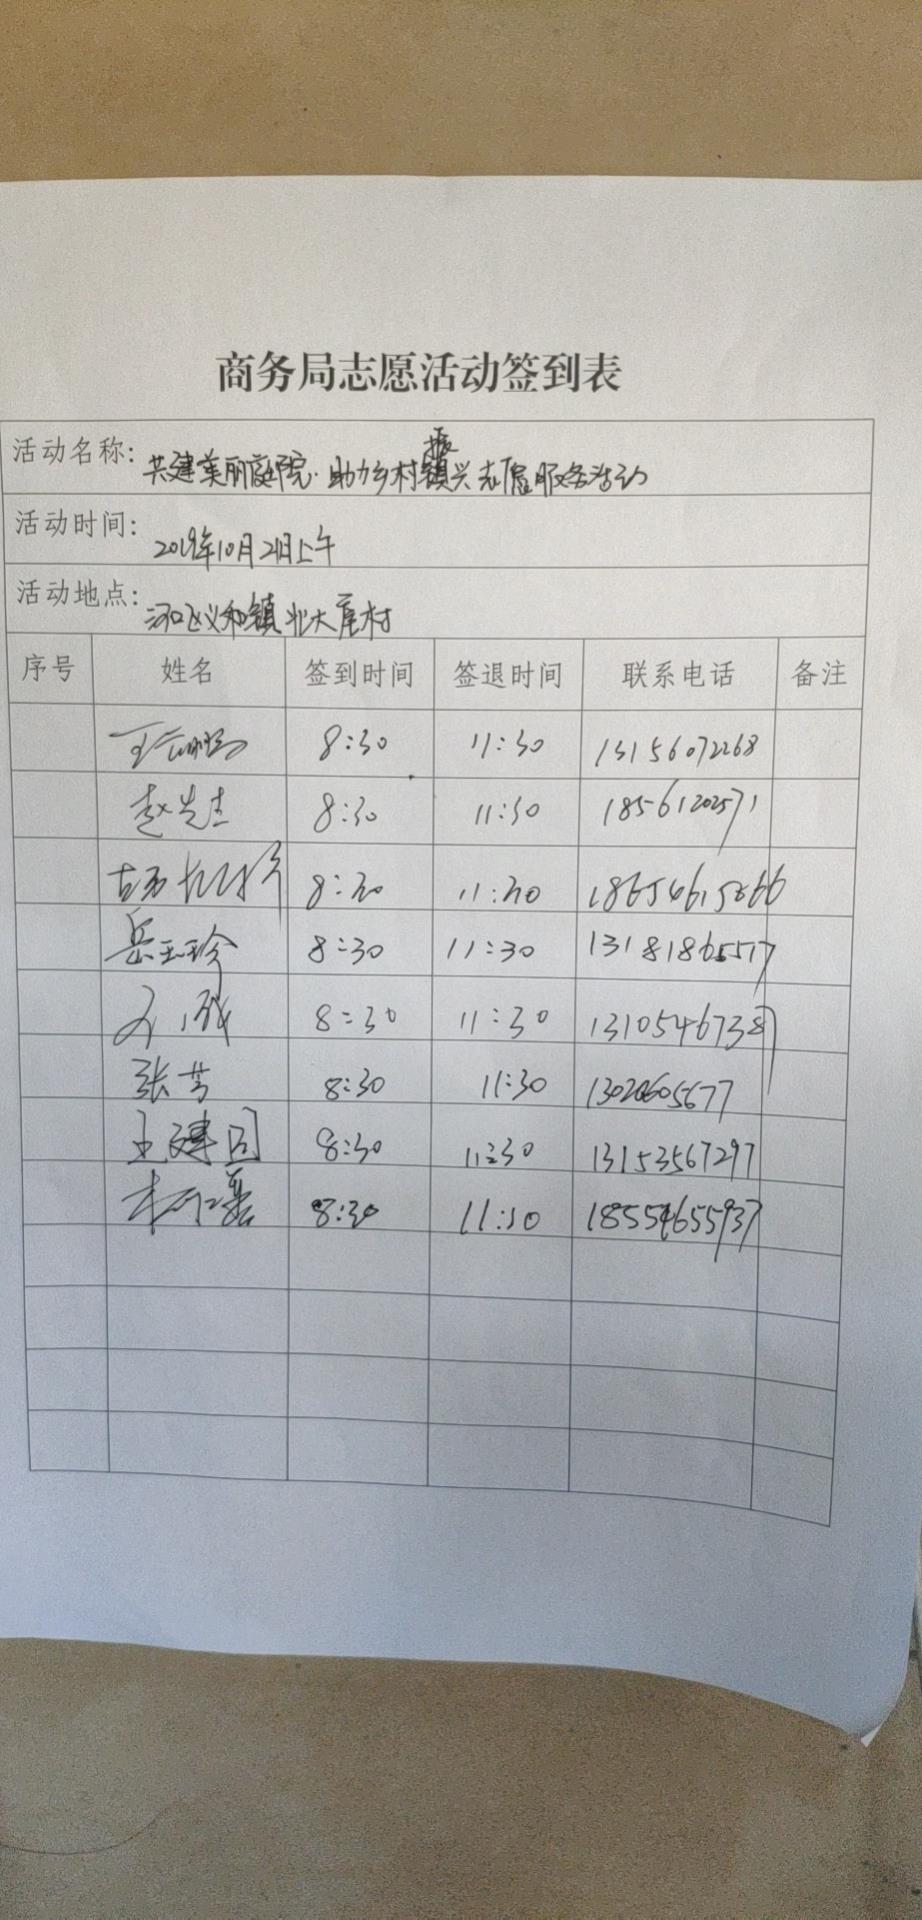 商务局志愿活动签到表
活动名称: 共建美丽庭院·助力乡村振兴志愿服务活动
活动时间: 2019年10月21日上午
活动地点: 河口区义和镇北大
序号 姓名 签到时间 签退时间 联系电话 备注
8:30 11:30 13156072268
赵先生 8:30 11:30 18561202571
8:30 11:30
岳玉珍 8:30 11:30 13181865517
8:30 11:30 13105467387
张芳 8:30 11:30 13020605677
王建国 8:30 11:30 13153567297
8:30 11:30 18554655937